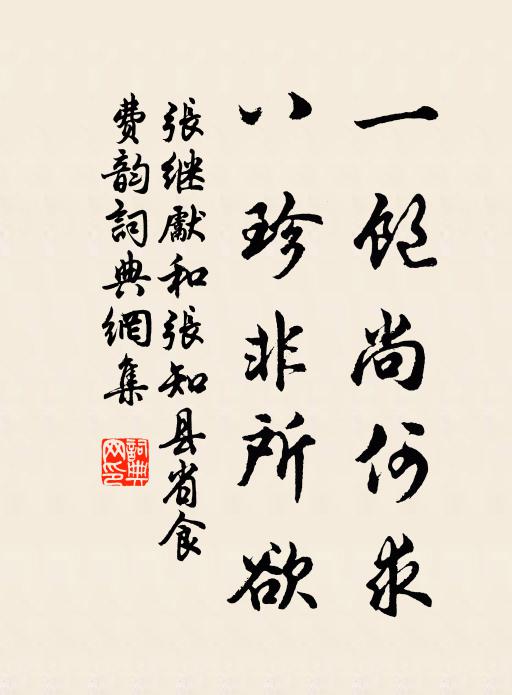 一飽尚何求
八珍非所欲
張继獻和張知县省食
費韵詞典網集
詞典网印